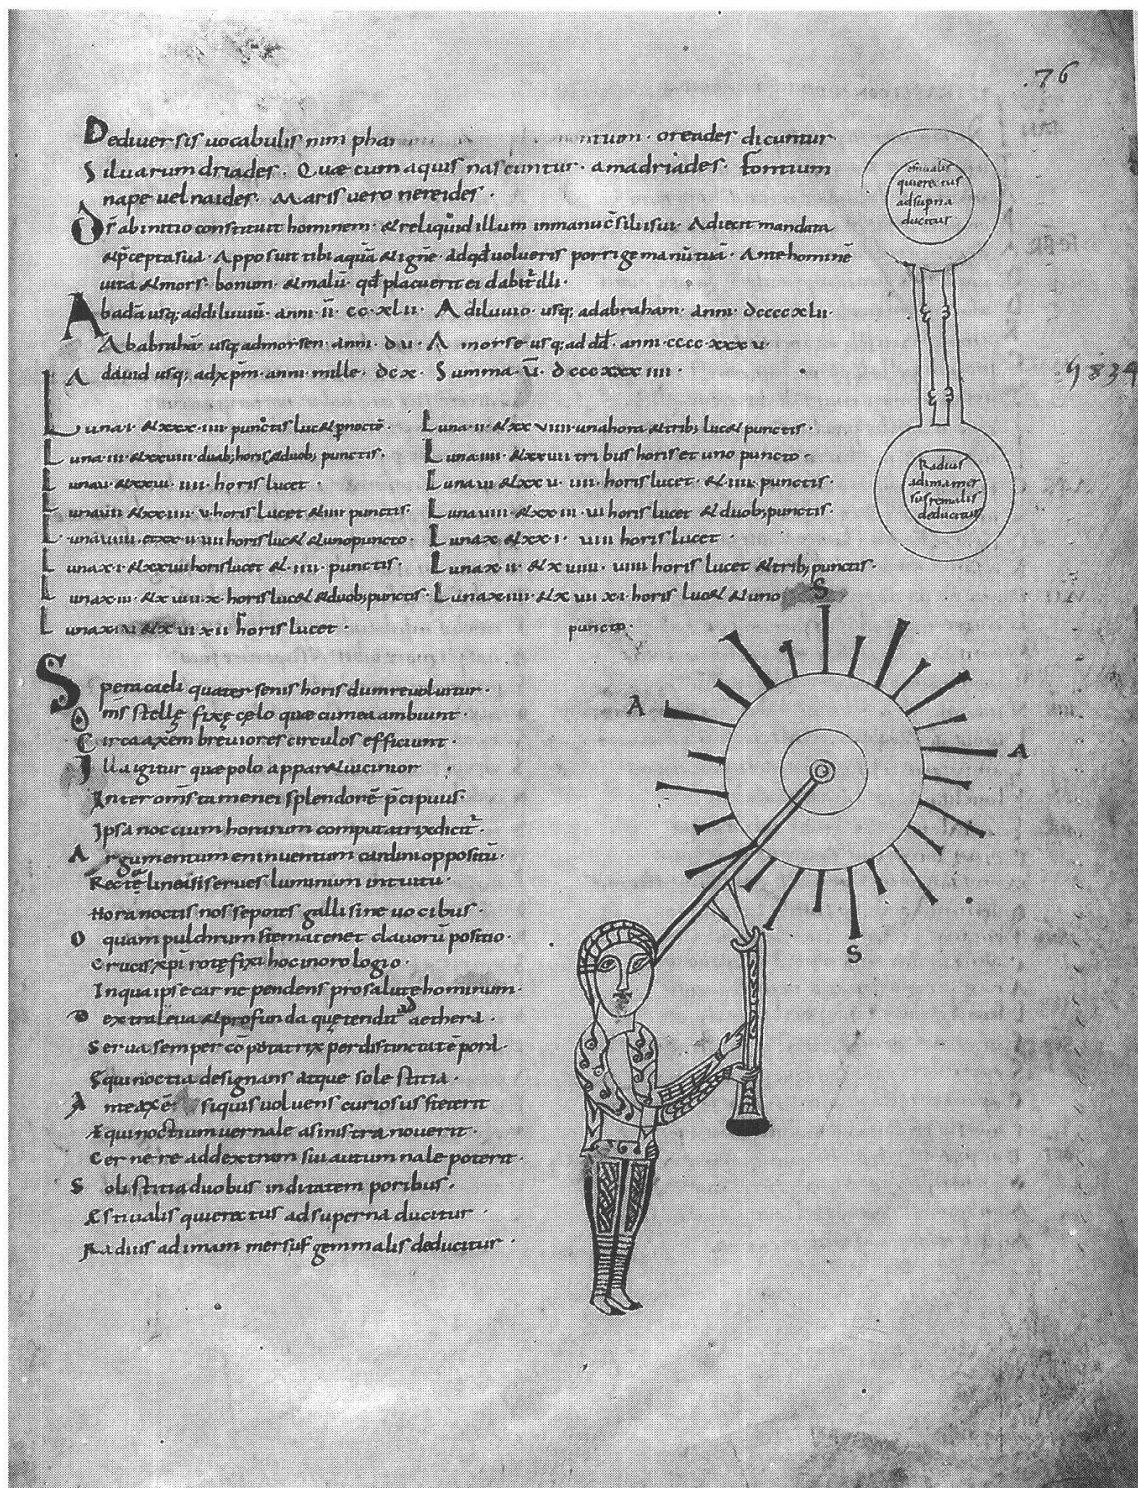 76
De diversis vocabulis nimphar montium · oreades dicuntur
Siluarum driades · Quae cum aquis nascuntur · amadriades · Fontium
nape uel naides · Maris uero nereides ·
D̅s̅ ab initio constituit hominem · & reliquid illum in manu c̅silii sui · Adiecit mandata
& p̅cepta sua · Apposuit tibi aqua̅ & igne̅ · ad qd̅ uolueris porrige manu̅ tua̅ · Ante homine̅
uita & mors · bonum · & malu̅ · qd̅ placuerit ei dabit̅ illi ·
Ab ada̅ usq; ad diluuiu̅ · anni · ii̅ · cc · xlii · A diluuio · usq; ad abraham · anni · dcccc xlii ·
Ab abraha̅ usq; ad morsen · anni · dv · A morse usq; ad dd̅ · anni · cccc · xxx v ·
A dauid usq; ad xp̅m · anni · mille · dc x · Summa · v̅ · dccc xxx iiii ·
5834
Luna · i · & xxx · iiii · punctis luc& p noctē · Luna · ii · & xx viiii · una hora & trib; luc& punctis ·
Luna · iii · & xxviii · duab; horis & duob; punctis · Luna · iiii · & xxvii tribus horis et uno puncto ·
Luna v · & xxvi · iiii · horis lucet · Luna vi & xx v · iiii · horis lucet · & · iiii · punctis ·
Luna vii · & xx iiii · v · horis lucet & iiii punctis · Luna viii · & xx iii · vi horis lucet & duob; punctis ·
Luna viiii · et xx ii · vii horis luc& & uno puncto · Luna x · & xx i · viii horis lucet ·
Luna x · i · & xx viii horis lucet & · iiii · punctis · Luna x · ii · & x viiii · viiii horis lucet & trib; punctis ·
Luna x · iii · & x viii · x · horis luc& & duob; punctis · Luna x · iiii · & x vii xi · horis luc& & uno
Luna x · v · & x vi xii horis lucet · puncto ·
Spera caeli quater senis horis dum reuoluitur ·
Om̅s stellę fixę cęlo quae cum ea ambiunt
Circa axem breuiores circulos efficiunt ·
Illa igitur quae polo appar& uicinior
Inter om̅s tamen ei splendore̅ p̅cipuus ·
Ipsa noctium horarum computatrix dicit̅ ·
Argumentum en inuentum cardini oppositu̅ ·
Recte̅ lineas si serues luminum intuitu ·
Hora noctis nosse potes galli sine uocibus ·
O quam pulchrum stema tenet clauoru̅ positio ·
Crucis xp̅i rotę fixi hoc in orologio ·
In qua ipse carne pendens pro salute hominum ·
Dextra leua & profunda quę tendit ad aethera ·
Serua semper co̅putatrix per distincta te̅pora
Equinoctia designans atque solestitia ·
Ante axe̅ siquis uoluens curiosus steterit
Æquinoctium uernale a sinistra nouerit ·
Cernere ad dextram sui autumnale poterit ·
Solistitia duobus indita temporibus ·
Æstiualis qui erectus ad superna ducitur ·
Radius ad imam mersus gemmalis deducitur ·
estiualis
qui erectus
ad supna
ducitur
Radius
ad ima mer
sus gemalis
deducitur
S
A
A
S